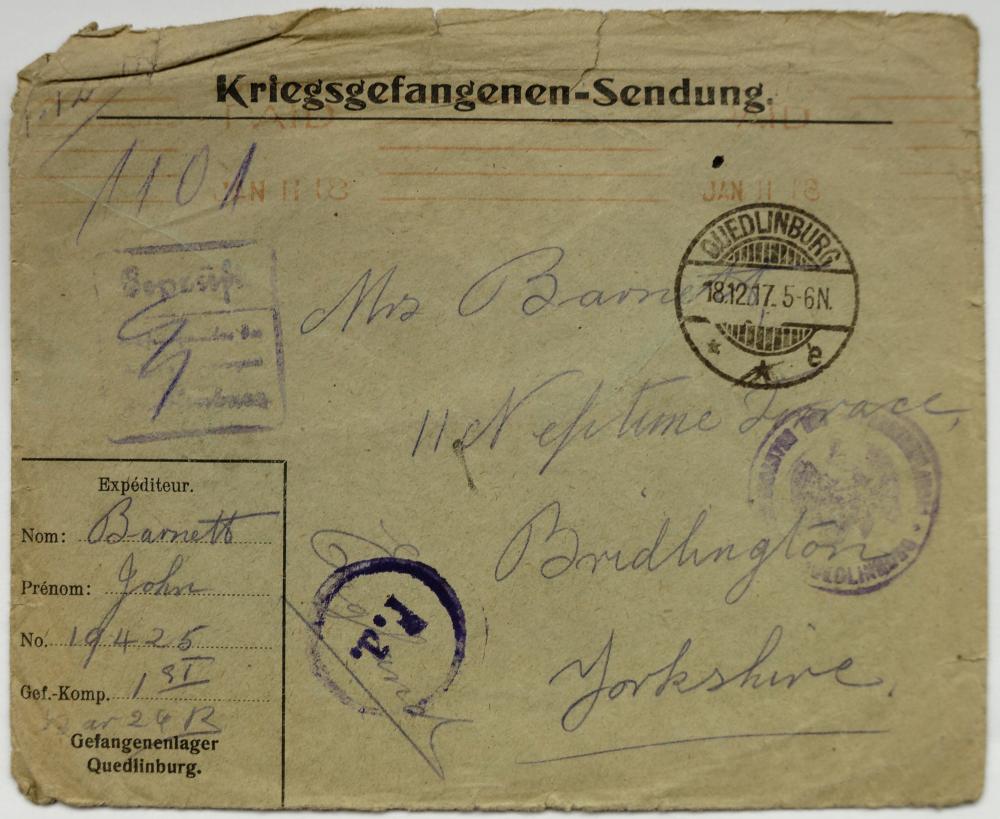 Kriegsgefangenen-Sendung.
PAID PAID
1101
JAN 11 18 JAN 11 18
QUEDLINBURG
18.12.17. 5-6N.
* * e
Geprüft
Mrs Barnett
11 Neptune Terrace,
Bridlington
Yorkshire.
QUEDLINBURG
England
P.d.
Expéditeur.
Nom: Barnett
Prénom: John
No. 19425
Gef.-Komp. 1ST
Bar 24 B
Gefangenenlager
Quedlinburg.